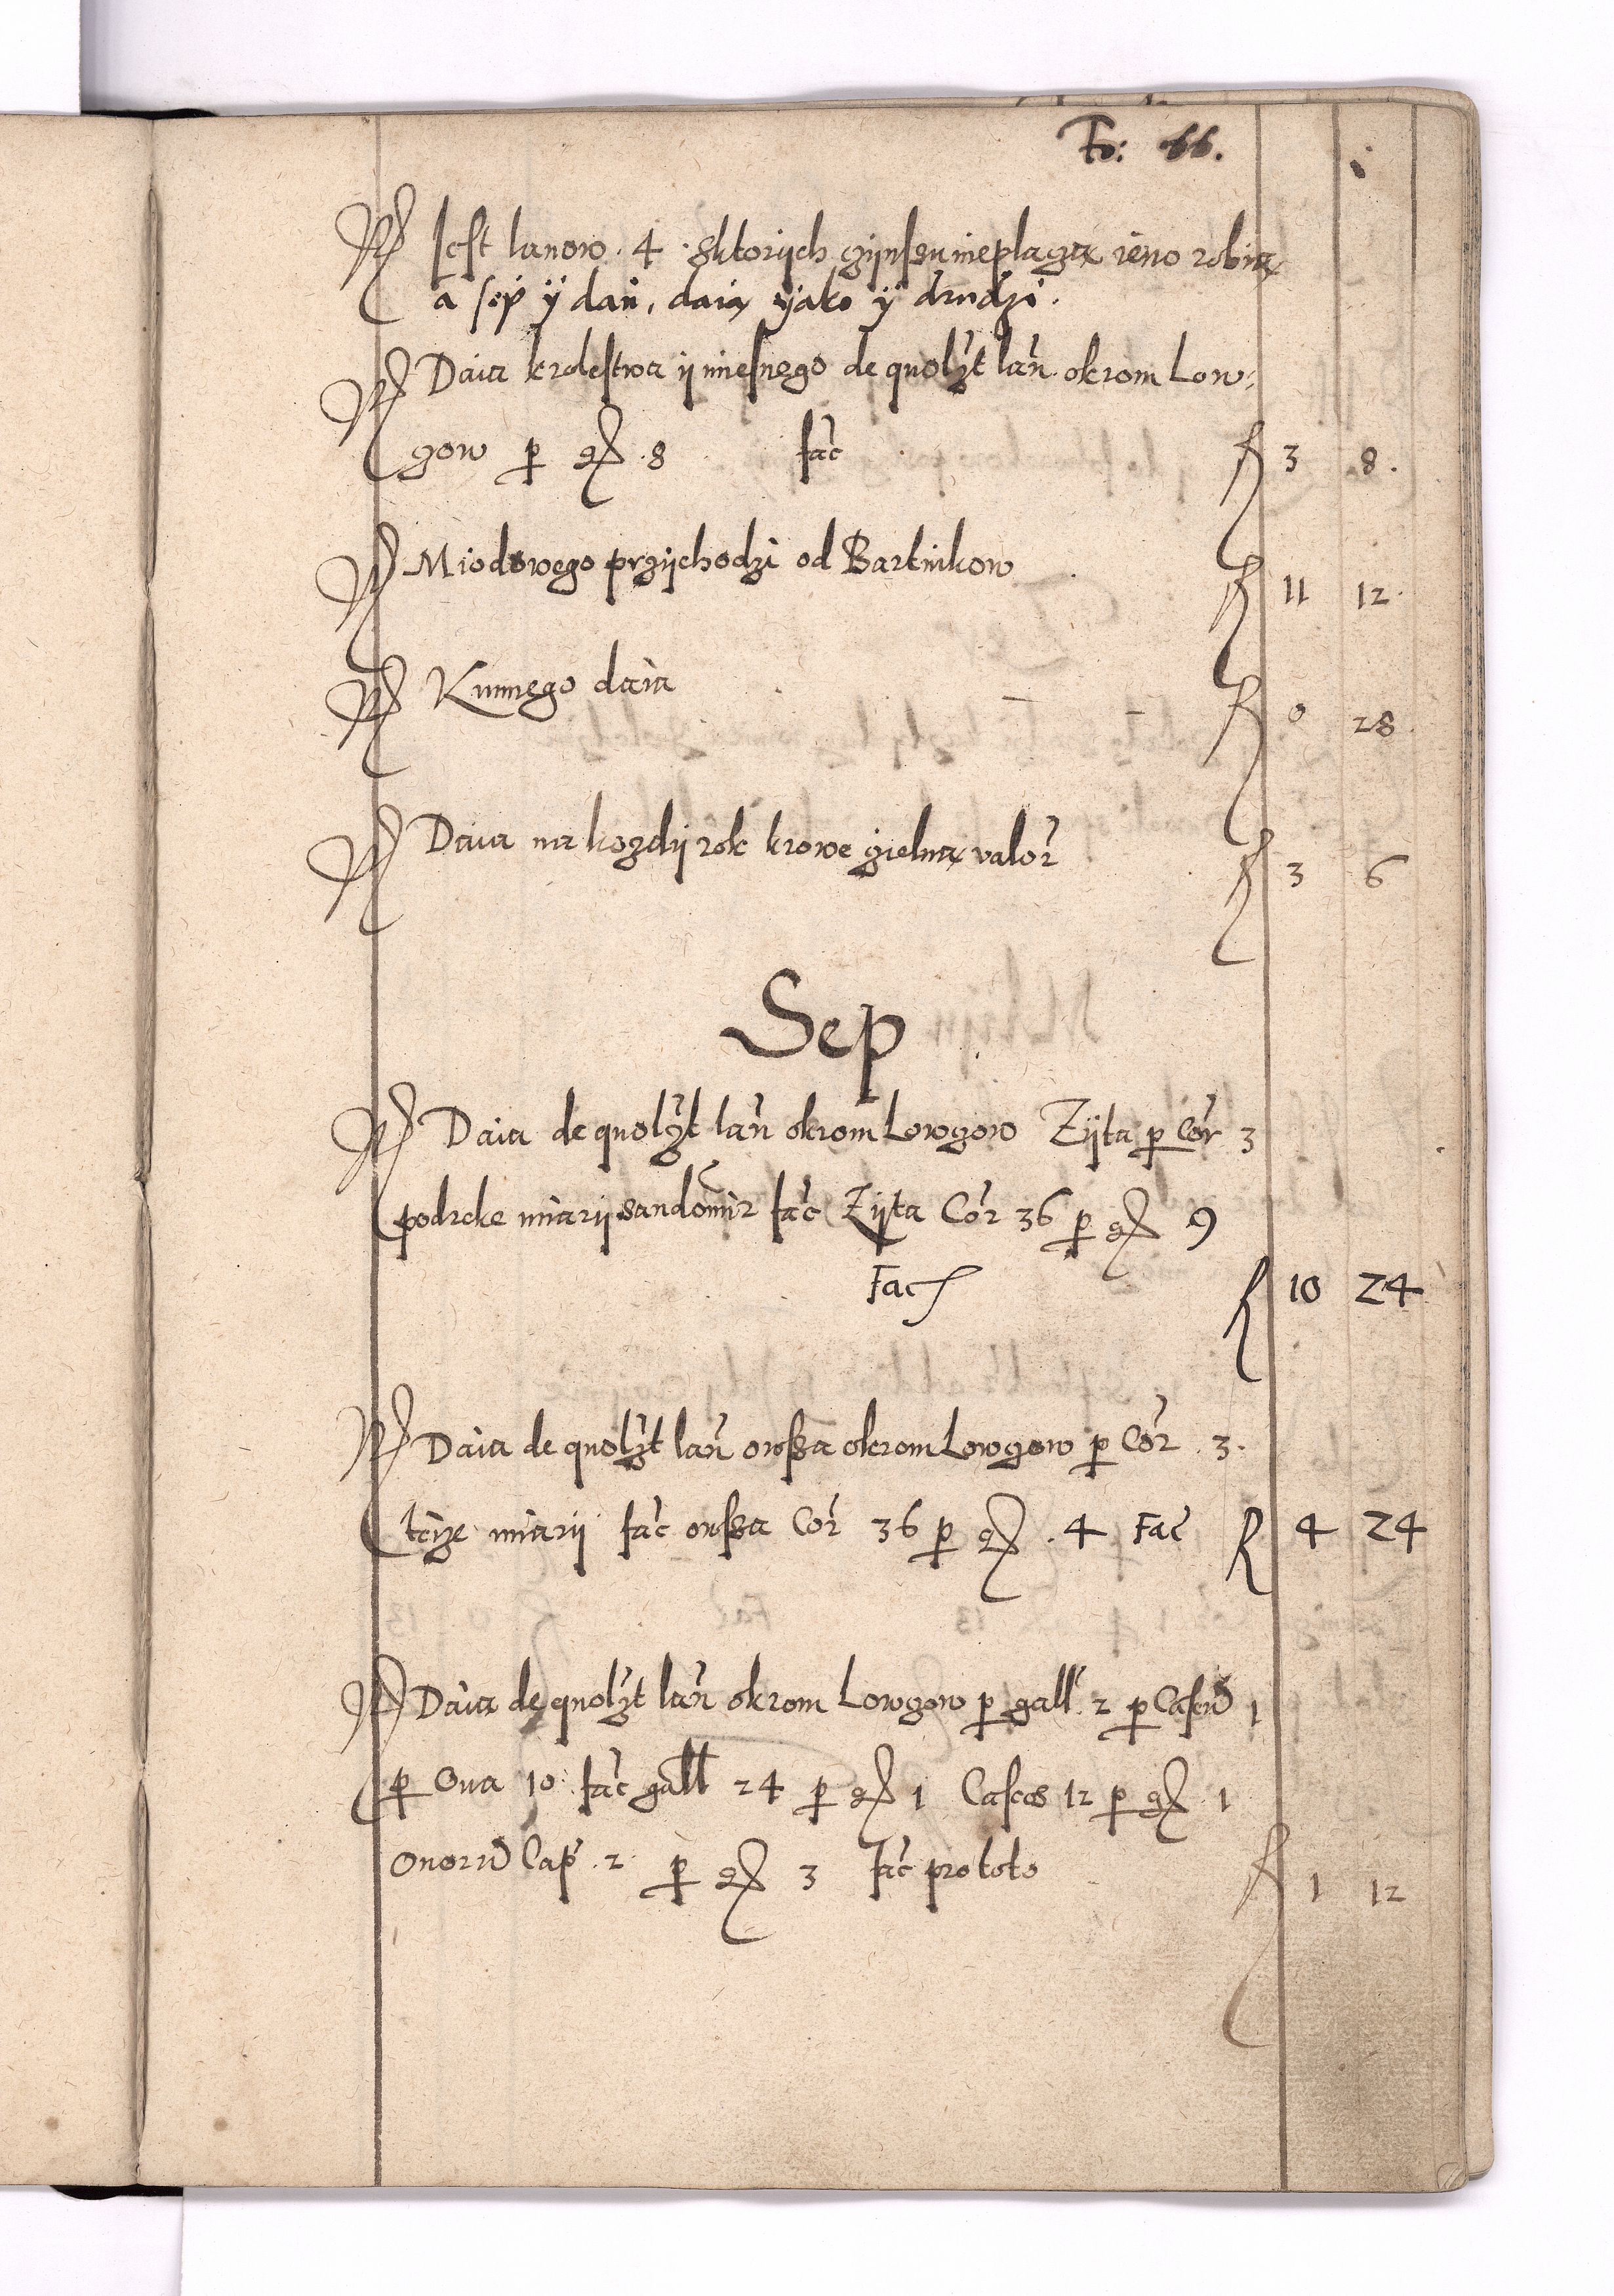 Fo: 66.
Jest lanow. 4. zktorijch czijnszu nieplaczą ieno robią
a sep ÿ dań, daią ÿako ÿ drudzi.
Daia krolestwa ij miesnego de quolȝt lan̄ okrom Low:
gow ꝑ gr 8 fac̄ fl 3 8.
Miodowego przijchodzi od Bartnikow fl 11 12.
Kunnego daia fl 0 28.
Daia na kozdij rok krowe gielną valor̄ fl 3 6
Sep
Daia de quolȝt lan̄ okrom Lowgow Zijta ꝑ Cor̄ 3
podrcke miarij sandomir fac̄ Zijta Cor̄ 36 ꝑ gr 9
Fac fl 10 24
Daia de quolȝt lan̄ owssa okrom Lowgow ꝑ Cor̄. 3.
teize miarij fac̄ owssa Cor̄ 36 ꝑ gr. 4 Fac̄ fl 4 24
Daia de quolȝt lan̄ okrom Lowgow ꝑ gall. 2 ꝑ Caseū 1
ꝑ Oua 10 fac̄ gall 24 ꝑ gr 1 Caseos 12 ꝑ gr. 1
Ouorū Cap̄. 2 ꝑ gr 3 fac̄ pro toto fl 1 12